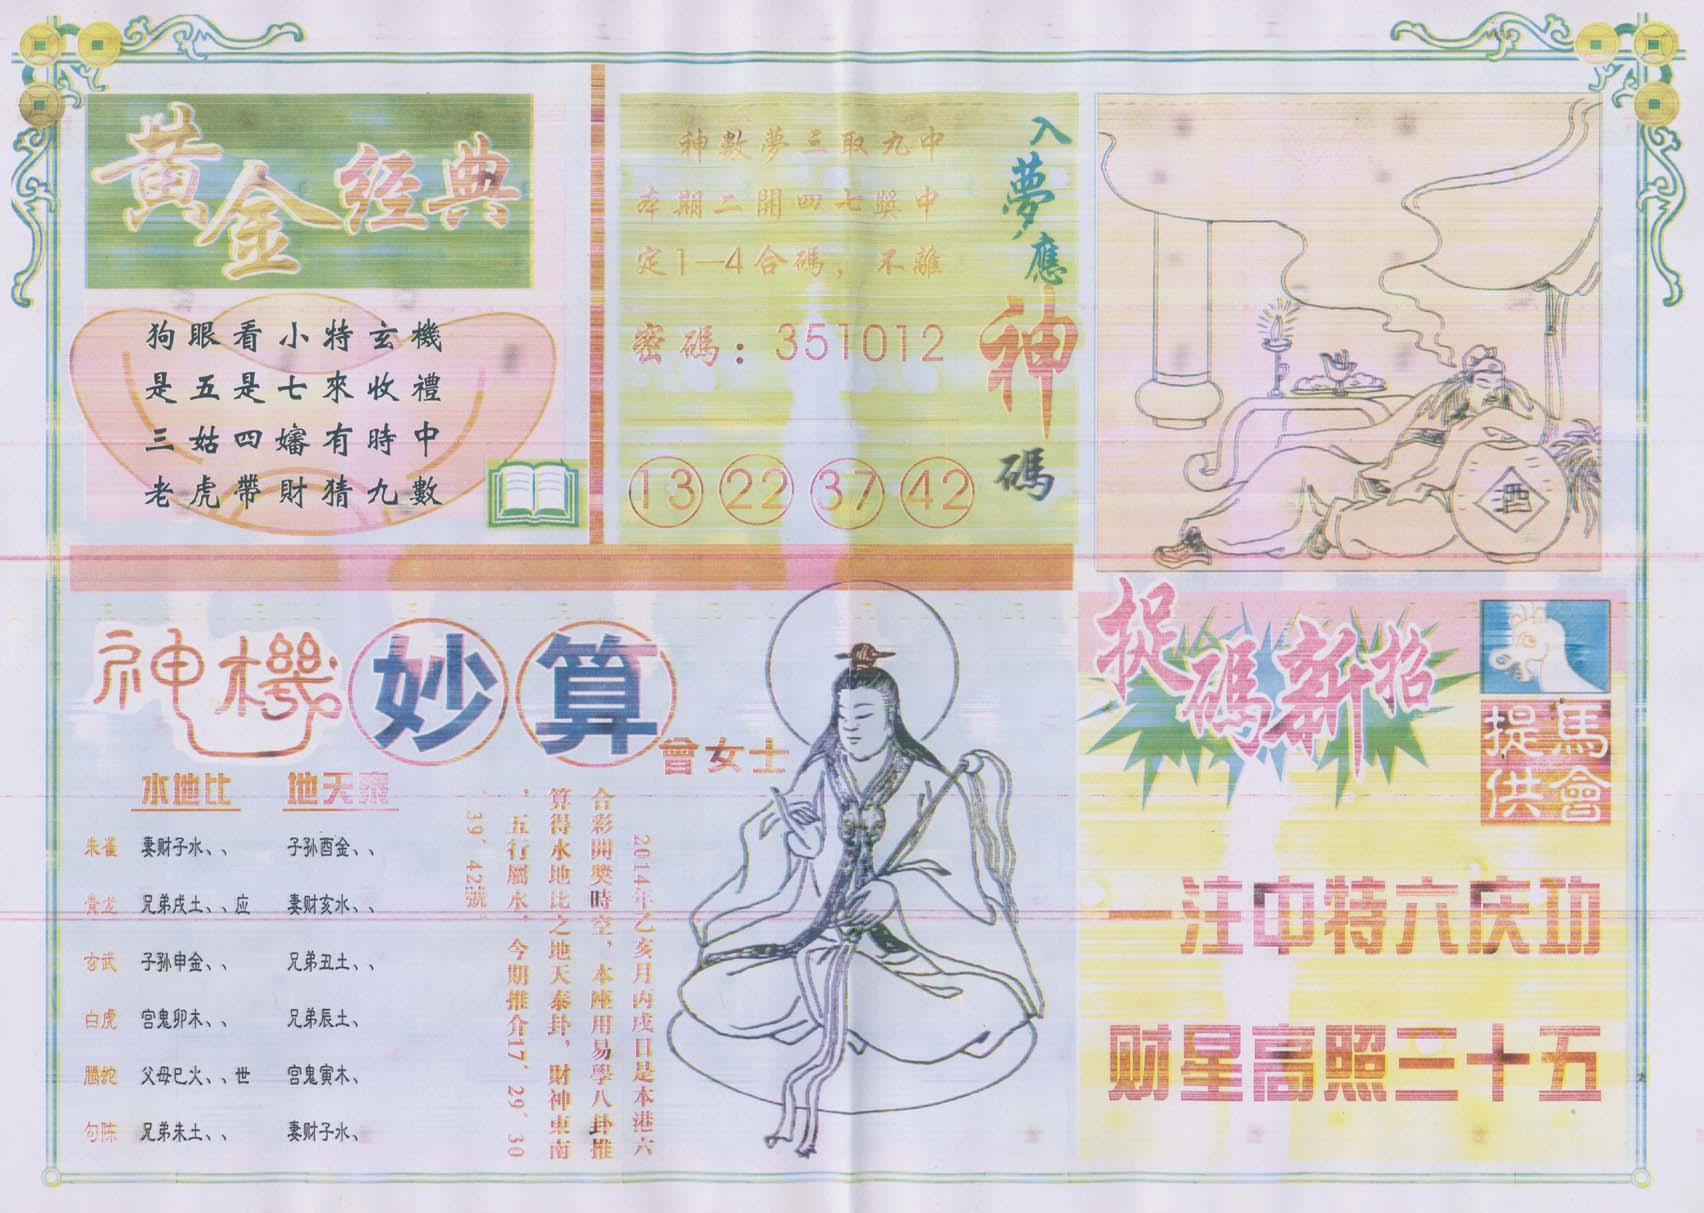 黄金经典
狗眼看小特玄機
是五是七來收禮
三姑四嬸有時中
老虎帶財猜九數
神數夢三取九中
本期二開四七獎中
定1—4合碼，不離
密碼：351012
13 22 37 42
入夢應神碼
酒
神機妙算
曾女士
水地比 地天泰
朱雀 妻财子水、、 子孙酉金、、
青龙 兄弟戌土、、应 妻财亥水、、
玄武 子孙申金、、 兄弟丑土、、
白虎 宫鬼卯木、、 兄弟辰土、
腾蛇 父母巳火、、世 宫鬼寅木、
句陈 兄弟未土、、 妻财子水、
2014年乙亥月丙戌日是本港六
合彩開獎時空，本座用易學八卦推
算得水地比之地天泰卦，財神東南
，五行屬水，今期推介17、29、30
、39、42號。
捉碼新招
馬會提供
一注中特六庆功
财星高照三十五